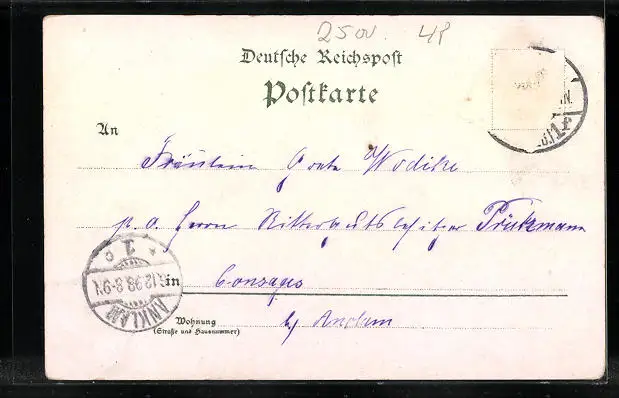 2500. 48
Deutsche Reichspost
Postkarte
An
Fräulein Greta Wodicke
p. a. Herrn Rittergutsbesitzer Prützmann
in Consages
Wohnung
(Straße und Hausnummer)
b/ Anclam
ANKLAM
12.98.8-9N
1 c